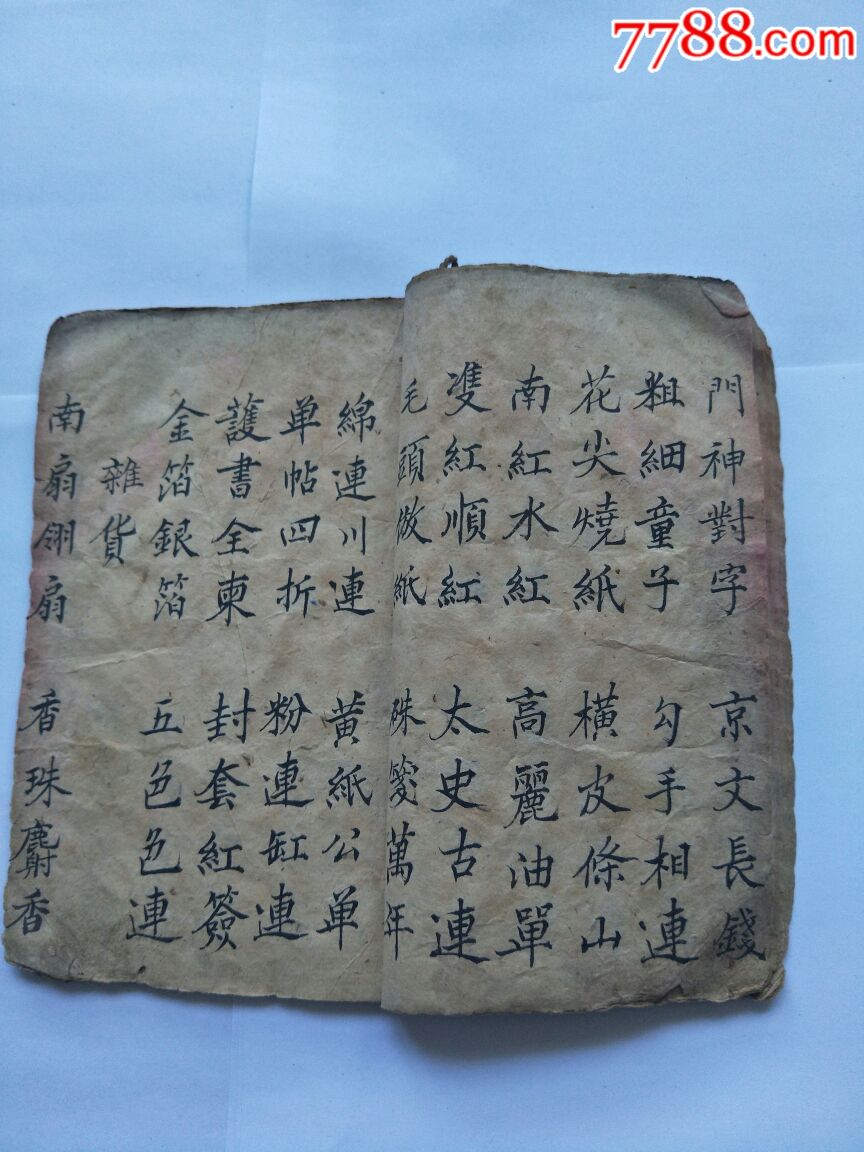 7788.com
門神對字 京文長錢
粗細童子 勾手相連
花尖燒紙 橫皮條山
南紅水紅 高麗油單
雙紅順紅 太史古連
毛頭倣紙 硃箋萬年
綿連川連 黃紙公单
单帖四折 粉連缸連
護書全柬 封套紅簽
金箔銀箔 五色色連
雜貨
南扇翎扇 香珠麝香